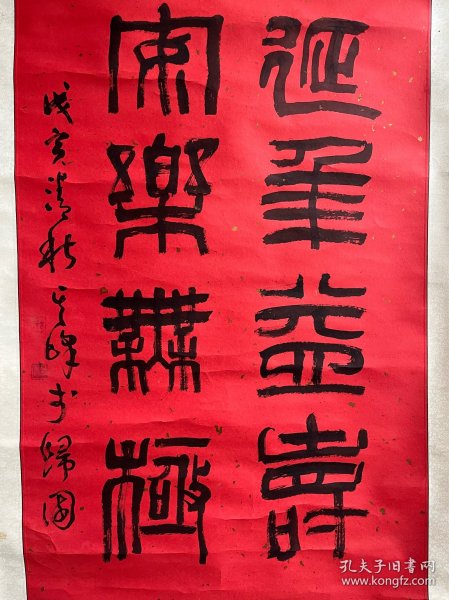 延年益壽
安樂無極
戊寅清秋其峰
孔夫子旧书网
www.kongfz.com